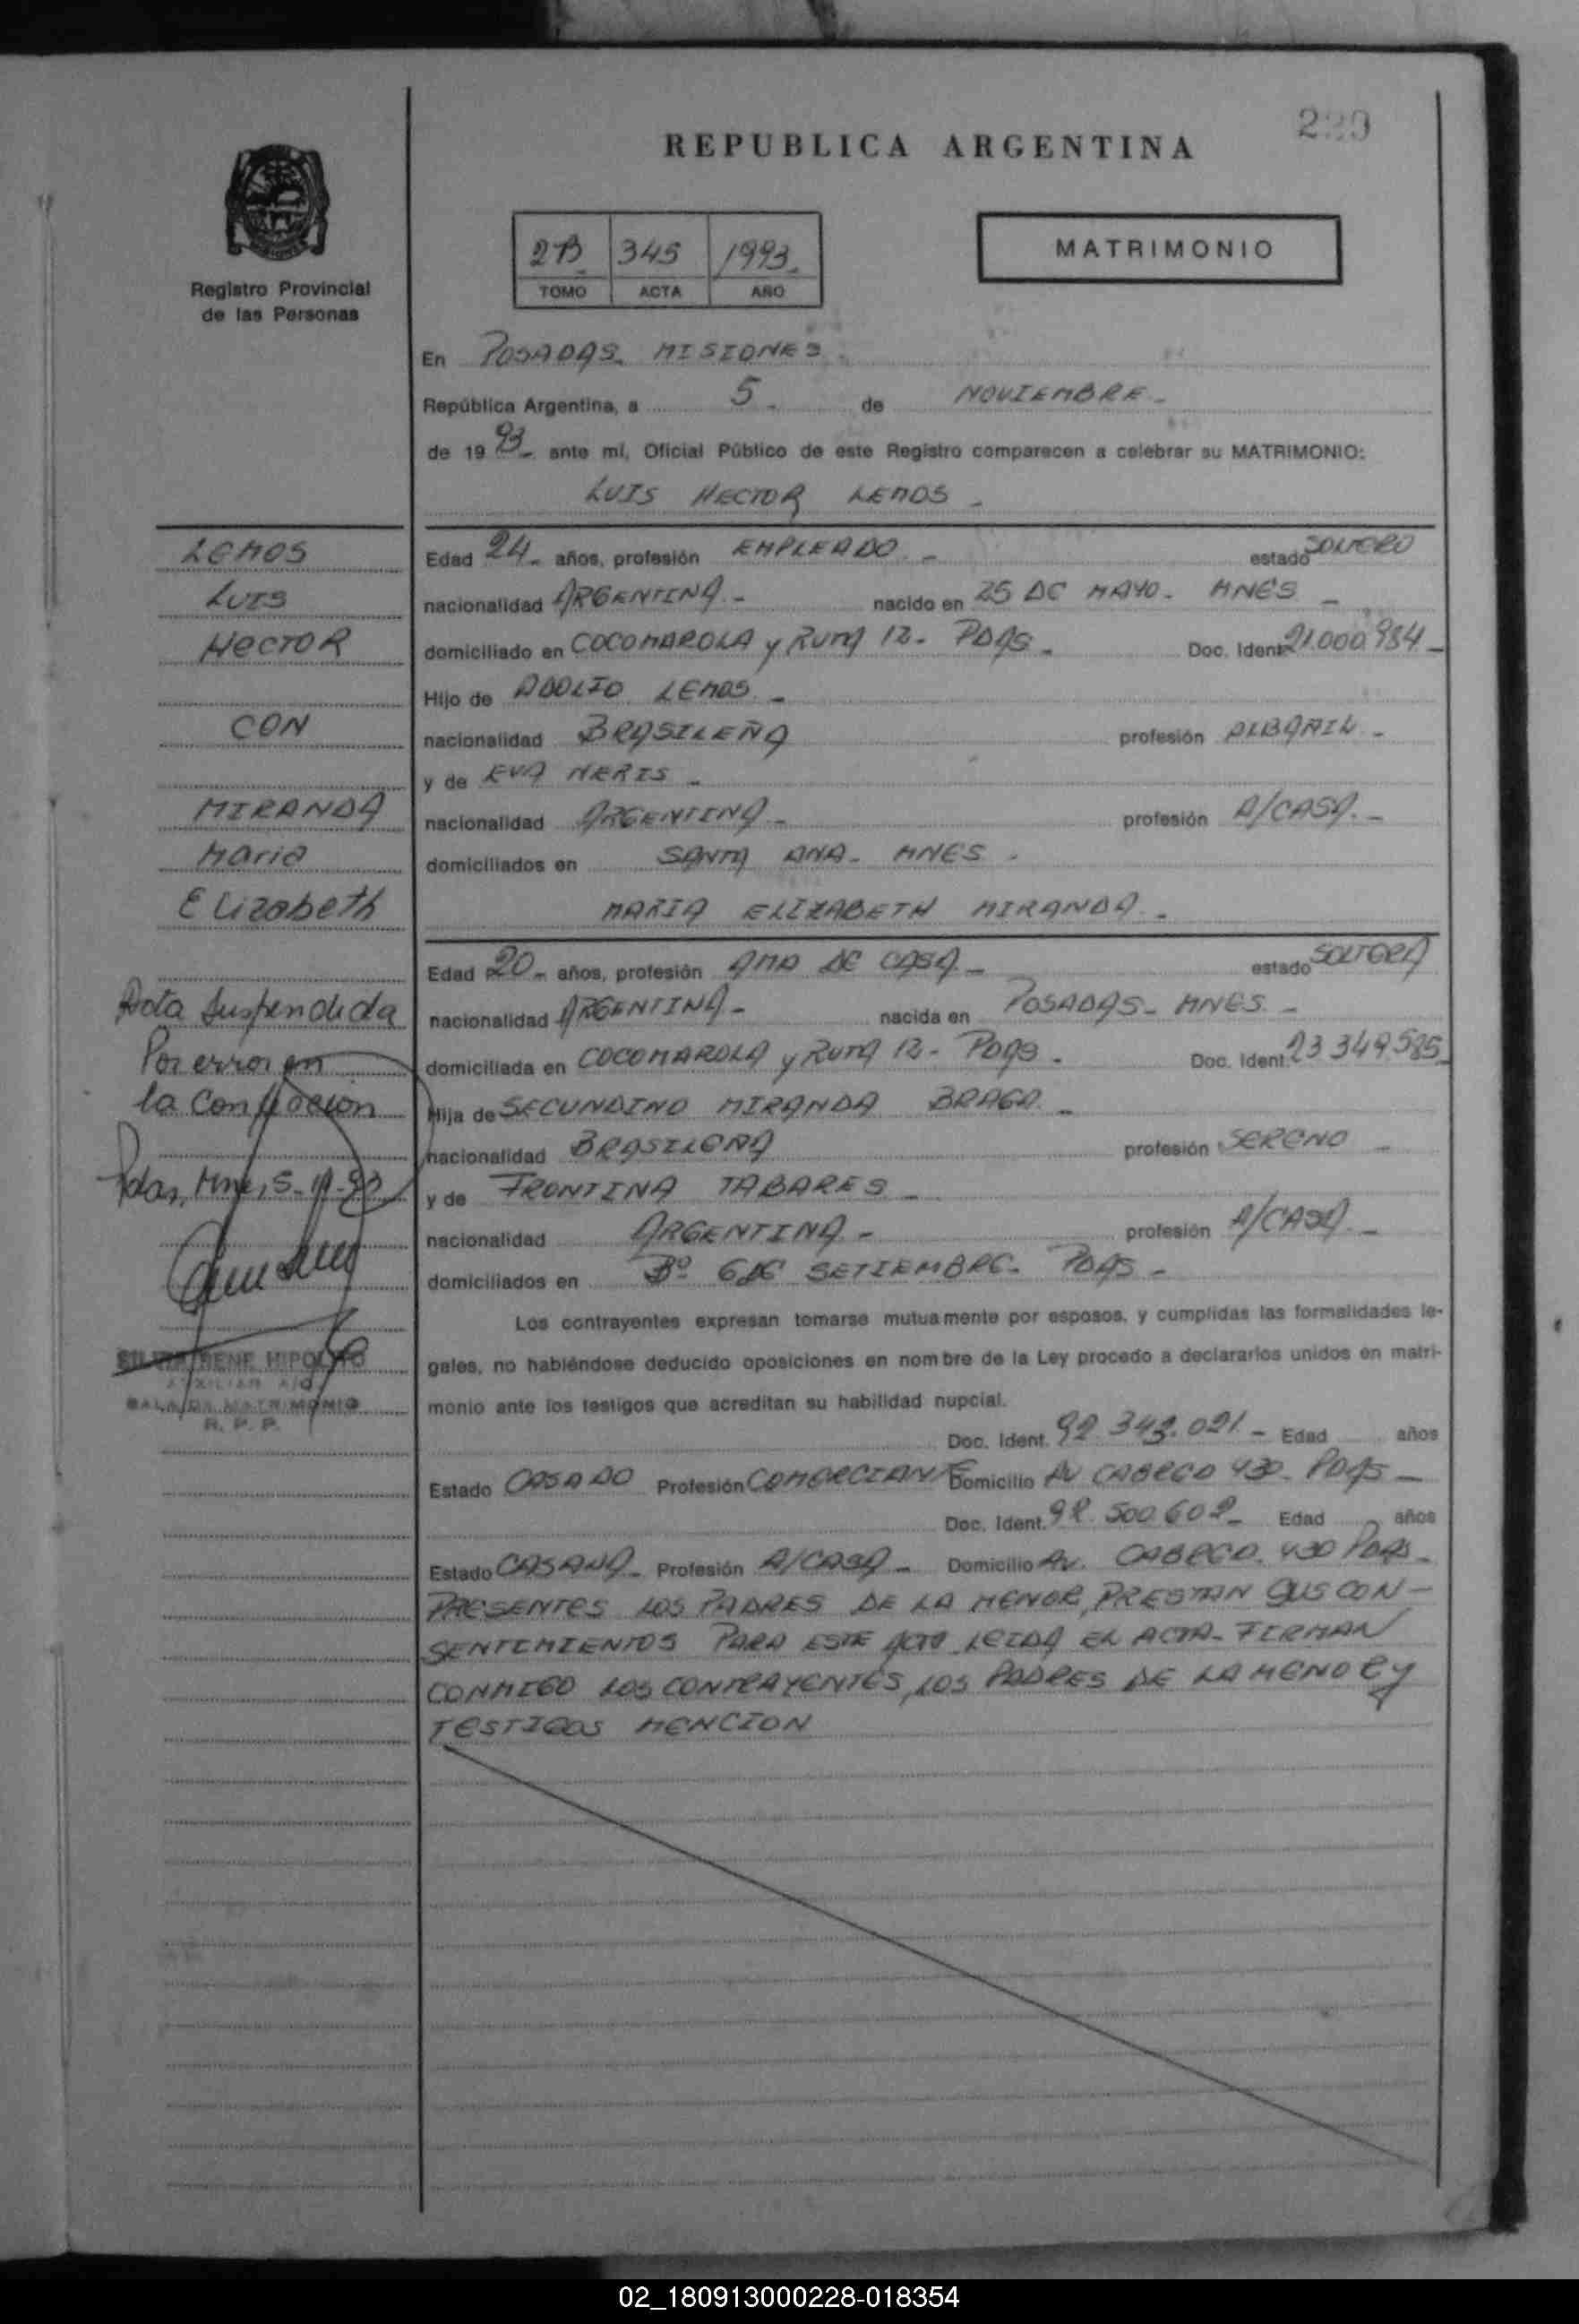 REPUBLICA ARGENTINA
229
Registro Provincial
de las Personas
2B 345 1993
TOMO ACTA AÑO
MATRIMONIO
En POSADAS MISIONES
República Argentina, a 5 de NOVIEMBRE
de 1993 ante mí, Oficial Público de este Registro comparecen a celebrar su MATRIMONIO:
LUIS HECTOR LEMOS
Edad 24 años, profesión EMPLEADO estado SOLTERO
nacionalidad ARGENTINA nacido en 25 DE MAYO. MNES
domiciliado en COCOMAROLA y RUTA 12. PDAS Doc. Ident. 21.000.984
Hijo de ADOLFO LEMOS
nacionalidad BRASILEÑA profesión ALBAÑIL
y de EVA NERIS
nacionalidad ARGENTINA profesión A/CASA
domiciliados en SANTA ANA. MNES
MARIA ELIZABETH MIRANDA
Edad 20 años, profesión AMA DE CASA estado SOLTERA
nacionalidad ARGENTINA nacida en POSADAS. MNES
domiciliada en COCOMAROLA y RUTA 12. PDAS Doc. Ident. 23.349.585
Hija de SECUNDINO MIRANDA BRAGA
nacionalidad BRASILEÑA profesión SERENO
y de FRONTINA TABARES
nacionalidad ARGENTINA profesión A/CASA
domiciliados en Bº 6 DE SETIEMBRE. PDAS
Los contrayentes expresan tomarse mutuamente por esposos, y cumplidas las formalidades le-
gales, no habiéndose deducido oposiciones en nombre de la Ley procedo a declararlos unidos en matri-
monio ante los testigos que acreditan su habilidad nupcial.
Doc. Ident. 92.343.021 Edad años
Estado CASADO Profesión COMERCIANTE Domicilio AV CABRED 430. PDAS
Doc. Ident. 92.500.602 Edad años
Estado CASADA Profesión A/CASA Domicilio AV. CABRED. 430 PDAS
PRESENTES LOS PADRES DE LA MENOR, PRESTAN SUS CON-
SENTIMIENTOS PARA ESTE ACTO. LEIDA EL ACTA. FIRMAN
CONMIGO LOS CONTRAYENTES, LOS PADRES DE LA MENOR y
TESTIGOS MENCION
LEMOS
LUIS
HECTOR
CON
MIRANDA
Maria
Elizabeth
Acta Suspendida
Por error en
la Confección
Pdas, Mnes, 5-11-93
IRENE HIPOLITO
AUXILIAR
SALA DE MATRIMONIO
R. P. P.
02_180913000228-018354